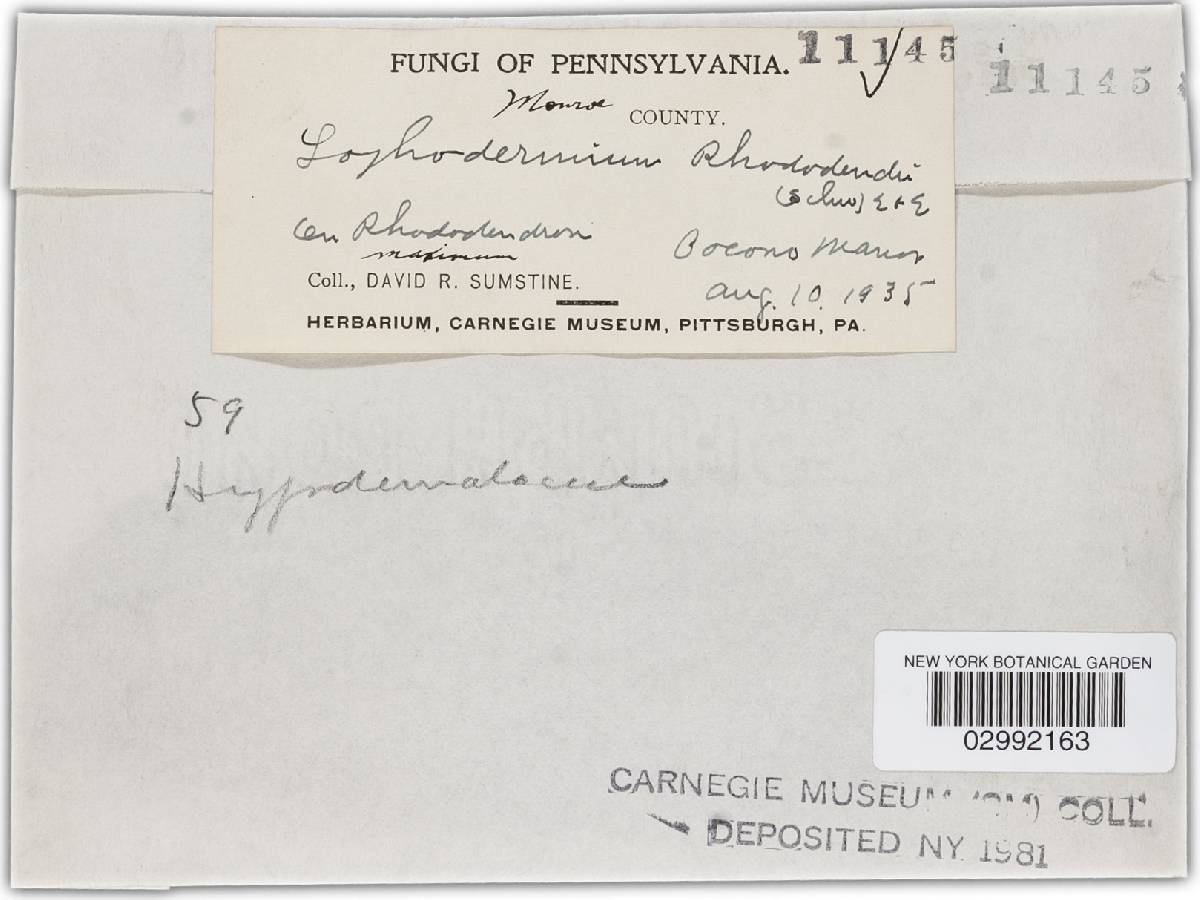 FUNGI OF PENNSYLVANIA. 11145
11145
Monroe COUNTY.
Lophodermium Rhododendri
(Schw) E & E
On Rhododendron Pocono Manor
maximum
Coll., DAVID R. SUMSTINE. Aug. 10. 1935
HERBARIUM, CARNEGIE MUSEUM, PITTSBURGH, PA.
59
Hypodermataceae
NEW YORK BOTANICAL GARDEN
02992163
CARNEGIE MUSEUM (CM) COLL.
DEPOSITED NY 1981